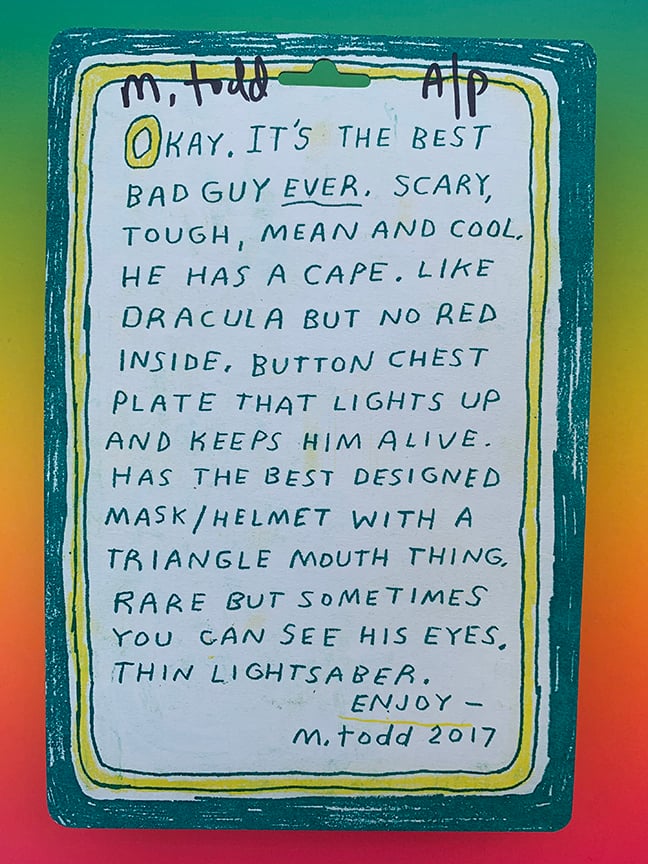 m. todd A/P
OKAY. IT'S THE BEST
BAD GUY EVER. SCARY,
TOUGH, MEAN AND COOL.
HE HAS A CAPE. LIKE
DRACULA BUT NO RED
INSIDE. BUTTON CHEST
PLATE THAT LIGHTS UP
AND KEEPS HIM ALIVE.
HAS THE BEST DESIGNED
MASK/HELMET WITH A
TRIANGLE MOUTH THING.
RARE BUT SOMETIMES
YOU CAN SEE HIS EYES.
THIN LIGHTSABER.
ENJOY –
m. todd 2017